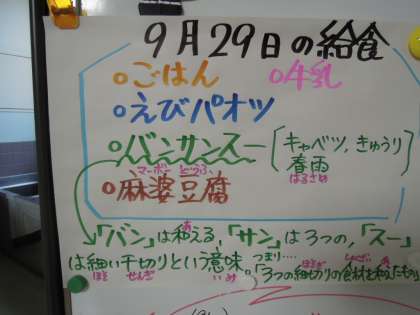 9月29日の給食
○ごはん ○牛乳
○えびパオツ
○バンサンスー〔キャベツ,きゅうり
春雨〕
はるさめ
マーボー どうふ
○麻婆豆腐
「バン」は和える,「サン」は3つの,「スー」
は細い千切りという意味。つまり……
「3つの細切りの食材を和えたもの」